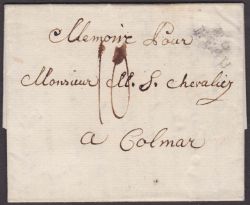 Memoire Pour
Monsieur M. S. Chevalier
10
a Colmar